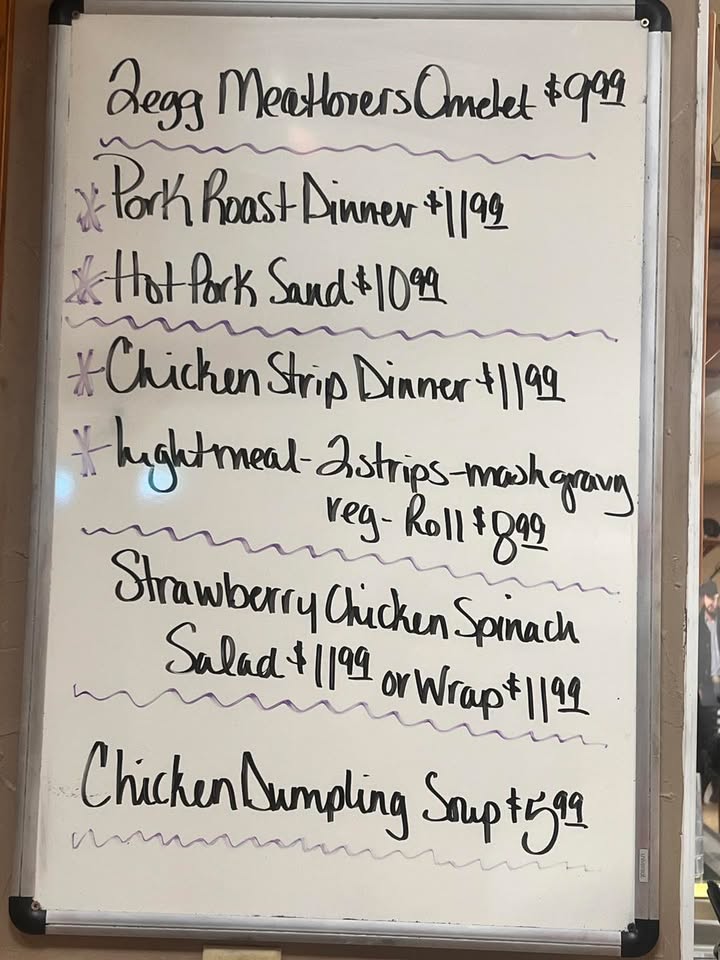 2egg Meatlovers Omelet $9.99
* Pork Roast Dinner $11.99
* Hot Pork Sand $10.99
* Chicken Strip Dinner $11.99
* Light meal - 2 strips - mash gravy
veg - Roll $8.99
Strawberry Chicken Spinach
Salad $11.99 or Wrap $11.99
Chicken Dumpling Soup $5.99